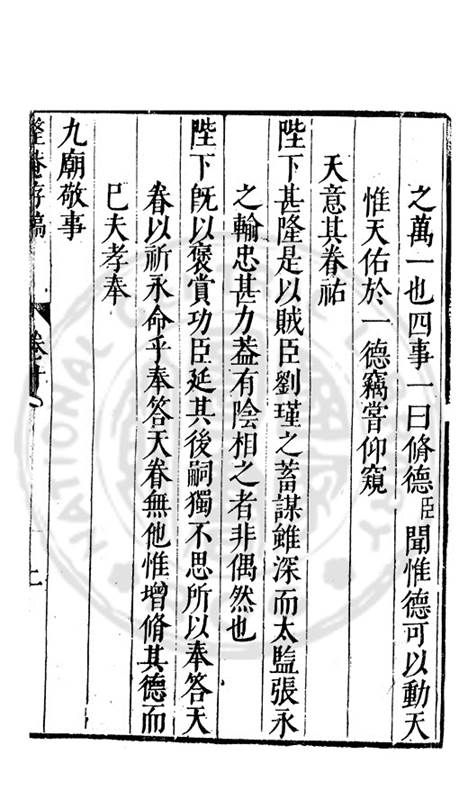 之萬一也四事一曰脩德臣聞惟德可以動天
惟天佑於一德竊嘗仰窺
天意其眷祐
陛下甚隆是以賊臣劉瑾之蓄謀雖深而太監張永
之輸忠甚力葢有陰相之者非偶然也
陛下旣以褒賞功臣延其後嗣獨不思所以奉答天
眷以祈永命乎奉答天眷無他惟增脩其德而
巳夫孝奉
九廟敬事
卷十
二
NATIONAL